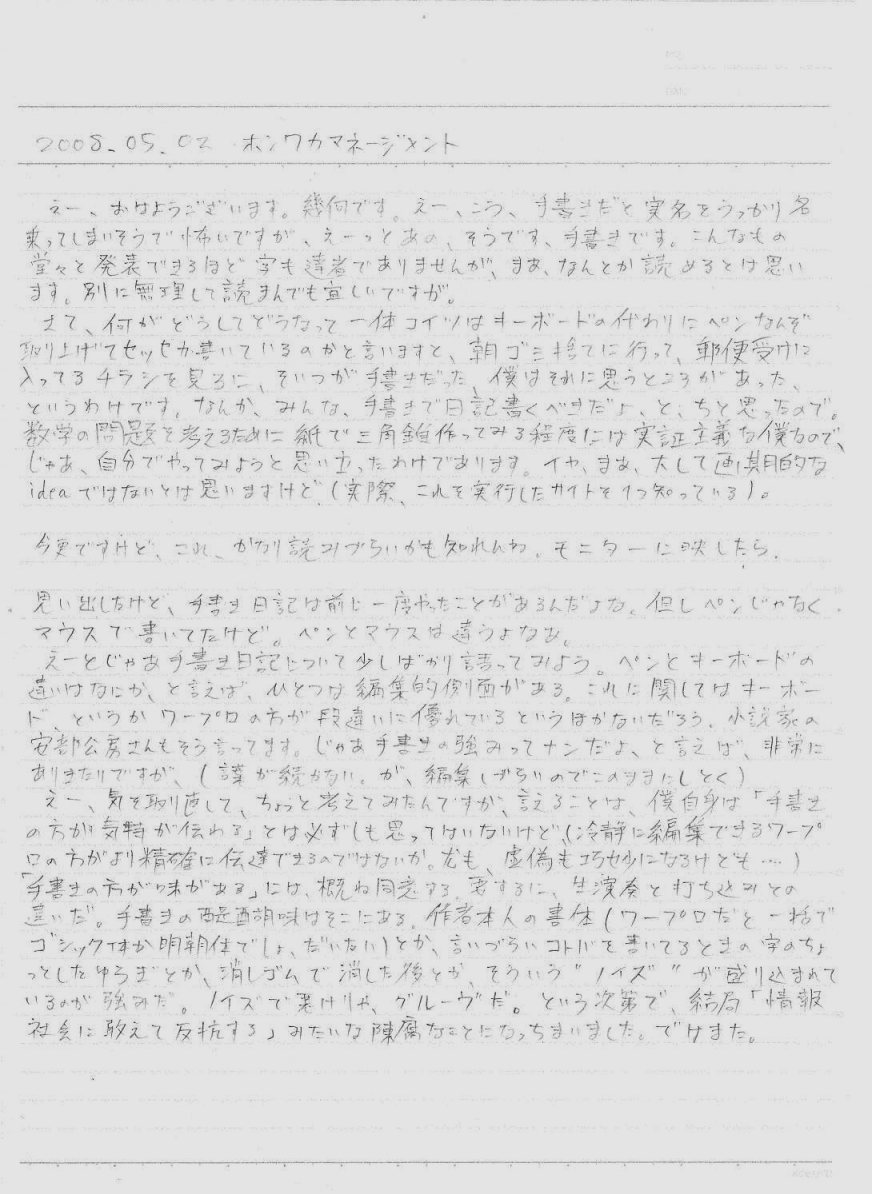 2008.05.02 ホンワカマネージメント
えー、おはようございます。幾何です。えー、こう、手書きだと実名をうっかり名
乗ってしまいそうで怖いですが、えーっとあの、そうです、手書きです。こんなもの
堂々と発表できるほど字も達者でありませんが、まあ、なんとか読めるとは思い
ます。別に無理して読まんでも宜しいですが。
さて、何がどうしてどうなって一体コイツはキーボードの代わりにペンなんぞ
取り上げてセッセか書いているのかと言いますと、朝ゴミ捨てに行って、郵便受けに
入ってるチラシを見るに、そいつが手書きだった、僕はそれに思うところがあった、
というわけです。なんか、みんな、手書きで日記書くべきだよ、と、ちと思ったので。
数学の問題を考えるために紙で三角錐作ってみる程度には実証主義な僕なので、
じゃあ、自分でやってみようと思い立ったわけであります。イヤ、まあ、大して画期的な
ideaではないとは思いますけど(実際、これを実行したサイトを1つ知っている)。
今更ですけど、これ、かなり読みづらいかも知れんね。モニターに映したら。
思い出したけど、手書き日記は前に一度やったことがあるんだよな。但しペンじゃなく
マウスで書いてたけど。ペンとマウスは違うよなあ。
えーとじゃあ手書き日記について少しばかり語ってみよう。ペンとキーボードの
違いはなにか、と言えば、ひとつは編集的側面がある。これに関してはキーボー
ド、というかワープロの方が段違いに優れているというほかないだろう、小説家の
安部公房さんもそう言ってます。じゃあ手書きの強みってナンだよ、と言えば、非常に
ありきたりですが、(語が続かない。が、編集しづらいのでこのままにしとく)
えー、気を取り直して、ちょっと考えてみたんですが、言えることは、僕自身は「手書き
の方が気持が伝わる」とは必ずしも思ってはいないけど、(冷静に編集できるワープ
ロの方がより精確に伝達できるのではないか。尤も、虚偽も巧妙になるけども…)
「手書きの方が味がある」には、概ね同意する。要するに、生演奏と打ち込みとの
違いだ。手書きの醍醐味はそこにある。作者本人の書体(ワープロだと一括で
ゴシック体か明朝体でしょ、だいたい)とか、言いづらいコトバを書いてるときの字のちょ
っとしたゆらぎとか、消しゴムで消した後とか、そういう"ノイズ"が盛り込まれて
いるのが強みだ。ノイズで悪けりゃ、グルーヴだ。という次第で、結局「情報
社会に敢えて反抗する」みたいな陳腐なことになっちまいました。でけまた。